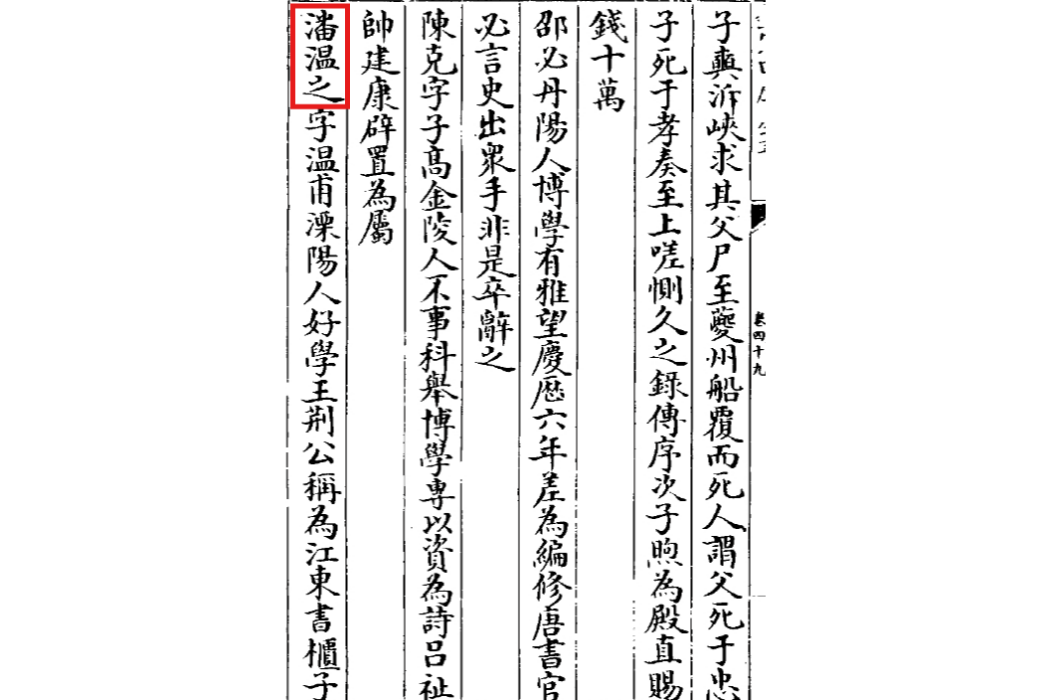 卷四十九
子奭泝峽求其父尸至夔州船覆而死人謂父死于忠
子死于孝奏至上嗟惻久之錄傳序次子煦為殿直賜
錢十萬
邵必丹陽人博學有雅望慶曆六年差為編修唐書官
必言史出衆手非是卒辭之
陳克字子高金陵人不事科舉博學專以資為詩呂祉
帥建康辟置為屬
潘温之字温甫溧陽人好學王荆公稱為江東書櫃子